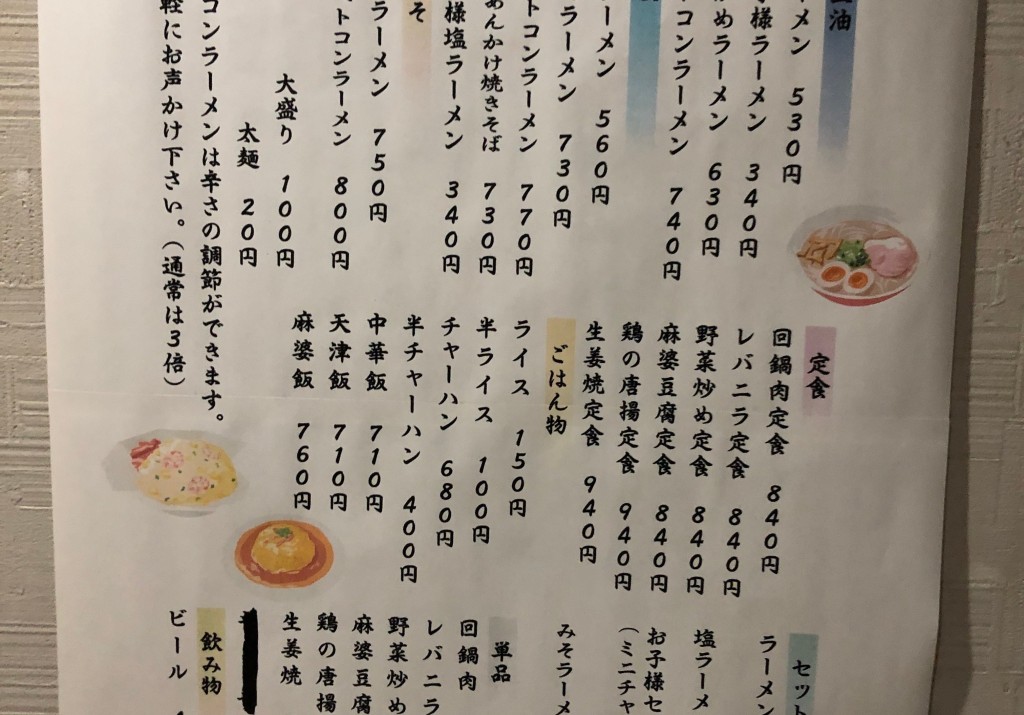 油
メン 530円
様ラーメン 340円
めラーメン 630円
コンラーメン 740円
ーメン 560円
ラーメン 730円
トコンラーメン 770円
あんかけ焼きそば 730円
様塩ラーメン 340円
そ
ラーメン 750円
トコンラーメン 800円
大盛り 100円
太麺 20円
コンラーメンは辛さの調節ができます。
軽にお声かけ下さい。(通常は3倍)
定食
回鍋肉定食 840円
レバニラ定食 840円
野菜炒め定食 840円
麻婆豆腐定食 840円
鶏の唐揚定食 940円
生姜焼定食 940円
ごはん物
ライス 150円
半ライス 100円
チャーハン 680円
半チャーハン 400円
中華飯 710円
天津飯 710円
麻婆飯 760円
セット
ラーメン
塩ラーメ
お子様セ
(ミニチャ
みそラーメ
単品
回鍋肉
レバニラ
野菜炒め
麻婆豆腐
鶏の唐揚
生姜焼
飲み物
ビール